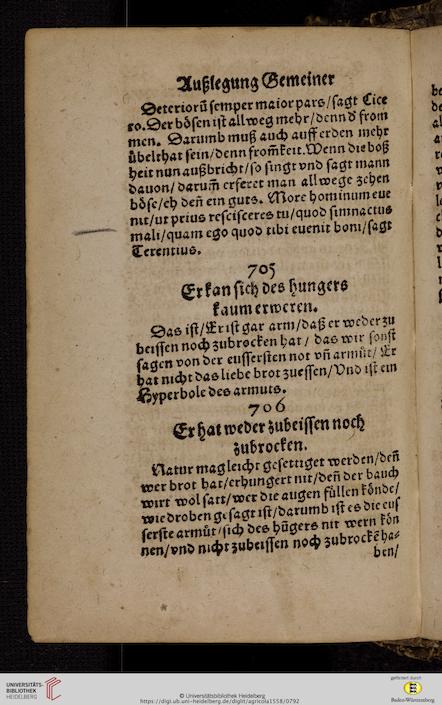 Außlegung Gemeiner
Deteriorū semper maior pars/sagt Cice
ro. Der bösen ist allweg mehr/denn d from
men. Darumb muß auch auff erden mehr
übelthat sein/denn from̃keit. Wenn die boß
heit nun außbricht/so singt vnd sagt mann
dauon/darum̃ erferet man allwege zehen
böse/eh deñ ein guts. More hominum eue
nit/ut prius rescisceres tu/quod simnactus
mali/quam ego quod tibi euenit boni/sagt
Terentius.
705
Er kan sich des hungers
kaum erweren.
Das ist/Er ist gar arm/daß er weder zu
beissen noch zubrocken hat/das wir sonst
sagen von der eussersten not vñ armůt/Er
hat nicht das liebe brot zuessen/Vnd ist ein
Hyperbole des armuts.
706
Er hat weder zubeissen noch
zubrocken.
Natur mag leicht gesettiget werden/deñ
wer brot hat/erhungert nit/deñ der bauch
wirt wol satt/wer die augen füllen könde/
wie droben gesagt ist/darumb ist es die eus
serste armůt/sich des hūgers nit wern kön
nen/vnd nicht zubeissen noch zubrockē ha⸗
ben/
UNIVERSITÄTS-
BIBLIOTHEK
HEIDELBERG
© Universitätsbibliothek Heidelberg
https://digi.ub.uni-heidelberg.de/diglit/agricola1558/0792
gefördert durch
Baden-Württemberg